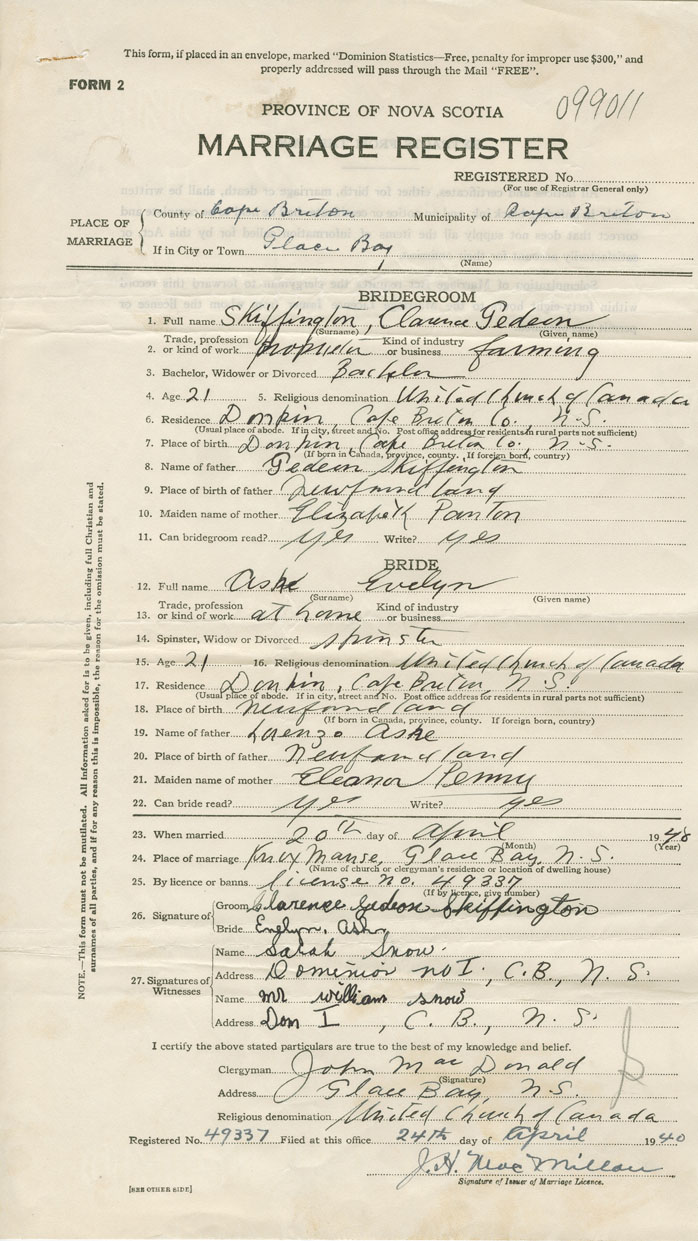 This form, if placed in an envelope, marked "Dominion Statistics—Free, penalty for improper use $300," and
properly addressed will pass through the Mail "FREE".
FORM 2
PROVINCE OF NOVA SCOTIA 099011
MARRIAGE REGISTER
REGISTERED No.
(For use of Registrar General only)
PLACE OF MARRIAGE
County of Cape Briton Municipality of Cape Briton
If in City or Town Glace Bay
(Name)
BRIDEGROOM
1. Full name Skiffington, Clarence Gedeon
(Surname) (Given name)
2. Trade, profession or kind of work Kind of industry or business farming
3. Bachelor, Widower or Divorced Bachelor
4. Age 21 5. Religious denomination United Church of Canada
6. Residence Donkin, Cape Breton Co. N.S.
(Usual place of abode. If in city, street and No. Post office address for residents in rural parts not sufficient)
7. Place of birth Donkin, Cape Breton Co. N.S.
(If born in Canada, province, county. If foreign born, country)
8. Name of father Gedeon Skiffington
9. Place of birth of father Newfoundland
10. Maiden name of mother Elizabeth Panton
11. Can bridegroom read? yes Write? yes
BRIDE
12. Full name Ashe Evelyn
(Surname) (Given name)
13. Trade, profession or kind of work at home Kind of industry or business
14. Spinster, Widow or Divorced spinster
15. Age 21 16. Religious denomination United Church of Canada
17. Residence Donkin, Cape Breton, N.S.
(Usual place of abode. If in city, street and No. Post office address for residents in rural parts not sufficient)
18. Place of birth Newfoundland
(If born in Canada, province, county. If foreign born, country)
19. Name of father Lorenzo Ashe
20. Place of birth of father Newfoundland
21. Maiden name of mother Eleanor Penny
22. Can bride read? yes Write? yes
23. When married 20th day of April 19
(Month) (Year)
24. Place of marriage Knox Manse, Glace Bay, N.S.
(Name of church or clergyman's residence or location of dwelling house)
25. By licence or banns license no. 49337
(If by licence, give number)
26. Signature of
Groom Clarence Gedeon Skiffington
Bride Evelyn. Ash
27. Signatures of Witnesses
Name Sarah Snow.
Address Dominion no I., C.B., N.S.
Name mr william snow
Address Dom I, C.B., N.S.
I certify the above stated particulars are true to the best of my knowledge and belief.
Clergyman John MacDonald
(Signature)
Address Glace Bay, N.S.
Religious denomination United Church of Canada
Registered No. 49337 Filed at this office 24th day of April 1940
J.H. MacMillan
Signature of Issuer of Marriage Licence.
[SEE OTHER SIDE]
NOTE.—This form must not be mutilated. All information asked for is to be given, including full Christian and
surnames of all parties, and if for any reason this is impossible, the reason for the omission must be stated.